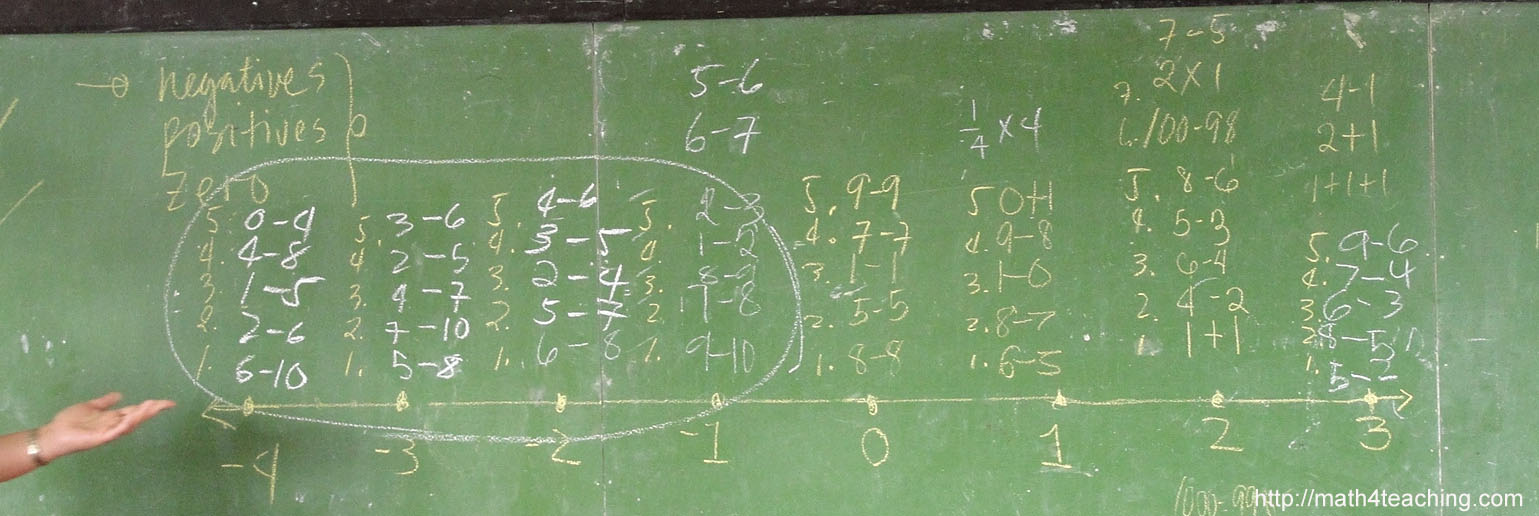 → negatives
positives
zero
5. 0-4
4. 4-8
3. 1-5
2. 2-6
1. 6-10
5. 3-6
4. 2-5
3. 4-7
2. 7-10
1. 5-8
5. 4-6
4. 3-5
3. 2-4
2. 5-7
1. 6-8
5-6
6-7
5. 2-3
4. 1-2
3. 8-9
2. 7-8
1. 9-10
5. 9-9
4. 7-7
3. 1-1
2. 5-5
1. 8-8
1/4 × 4
5 0+1
4. 9-8
3. 1-0
2. 8-7
1. 6-5
7-5
7. 2×1
6. 100-98
5. 8-6
4. 5-3
3. 6-4
2. 4-2
1. 1+1
4-1
2+1
1+1+1
5. 9-6
4. 7-4
3. 6-3
2. 8-5
1. 5-2
-4 -3 -2 -1 0 1 2 3
http://math4teaching.com